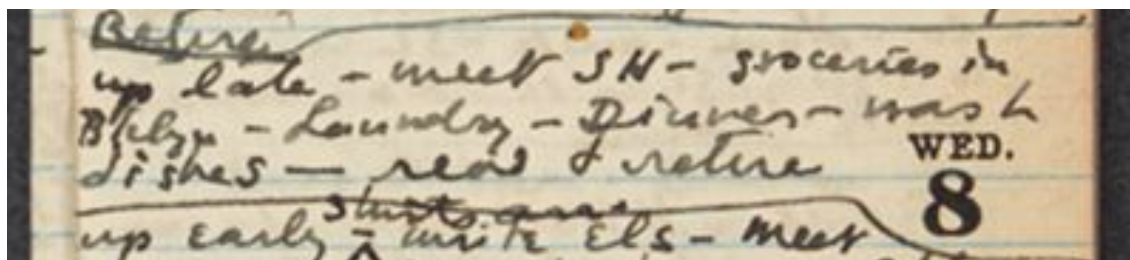 Retire
up late – meet SH – groceries in
Bklyn – Laundry – Dinner – wash
dishes — read & retire
WED.
8
up early – write Els – meet